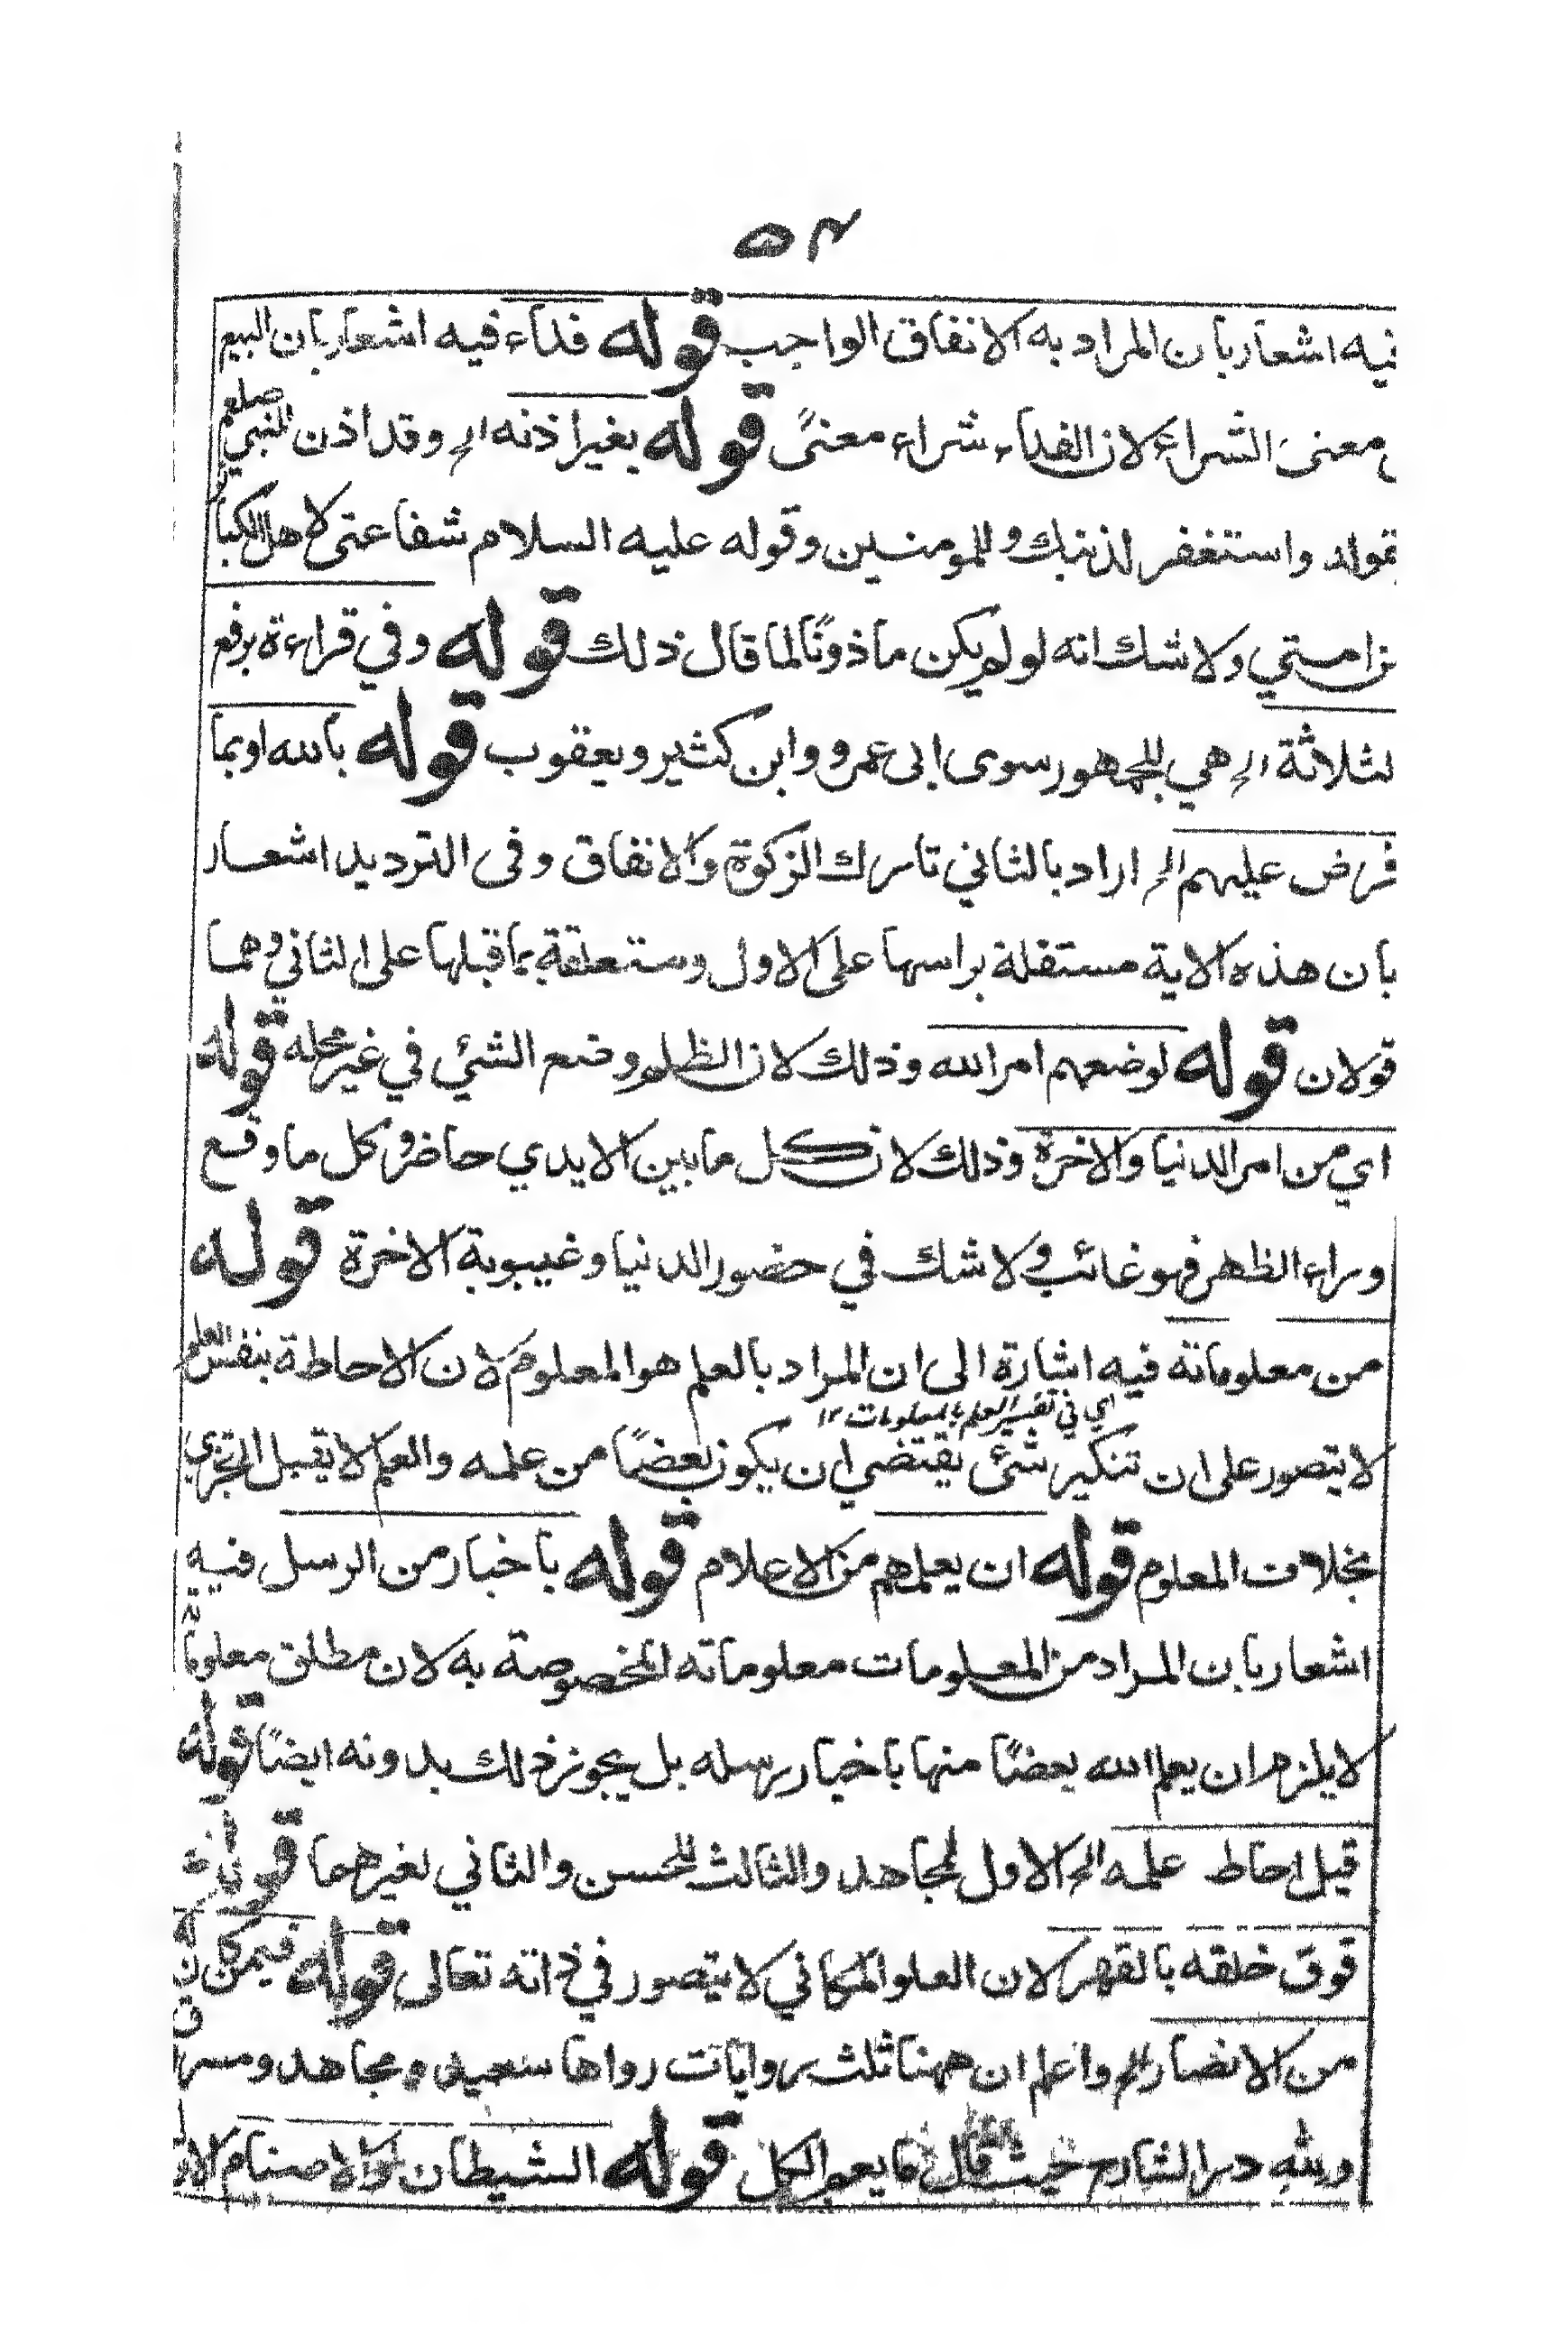 ٥٣
فيه اشعار بان المراد به الانفاق الواجب قوله فداء فيه اشعار بان البيع
معنى الشراء لان الفداء شراء معنىً قوله بغير اذنه الخ وقد اذن للنبي صلعم
بقوله واستغفر لذنبك وللمومنين وقوله عليه السلام شفاعتي لاهل الكبا
من امتي ولا شك انه لو لم يكن ماذونًا لما قال ذلك قوله وفي قراءة برفع
لثلاثة الخ هي للجمهور سوى ابى عمرو وابن كثير ويعقوب قوله بالله او بما
فرض عليهم الخ اراد بالثاني تارك الزكوة والانفاق وفى الترديد اشعار
بان هذه الاية مستقلة براسها على الاول ومتعلقة بما قبلها على الثاني وهما
قولان قوله لوضعهم امر الله وذلك لان الظلم وضع الشئي في غير محله قوله
اي من امر الدنيا والاخرة وذلك لان كل ما بين الايدي حاضر وكل ما وقع
وراء الظهر فهو غائب ولا شك في حضور الدنيا وغيبوبة الاخرة قوله
من معلوماته فيه اشارة الى ان المراد بالعلم هو المعلوم لان الاحاطة بنفس العلم
اي في تفسير العلم بالمعلومات ١٢
لا يتصور على ان تنكير شئ يقتضي ان يكون بعضًا من علمه والعلم لا يقبل التجزي
بخلاف المعلوم قوله ان يعلمهم من الاعلام قوله باخبار من الرسل فيه
اشعار بان المراد من المعلومات معلوماته المخصوصة به لان مطلق معلوماته
لا يلزم ان يعلم الله بعضًا منها باخبار رسله بل يجوز ذلك بدونه ايضًا قوله
قيل احاط علمه الخ الاول لمجاهد والثالث للحسن والثاني لغيرهما قوله
فوق خلقه بالقهر لان العلو المكاني لا يتصور في ذاته تعالى قوله فيمن كان له
من الانصار الخ واعلم ان ههنا ثلث روايات رواها سعيد ومجاهد ومسروق
ولله در الشارح حيث قال ما يعم الكل قوله الشيطان او الاصنام